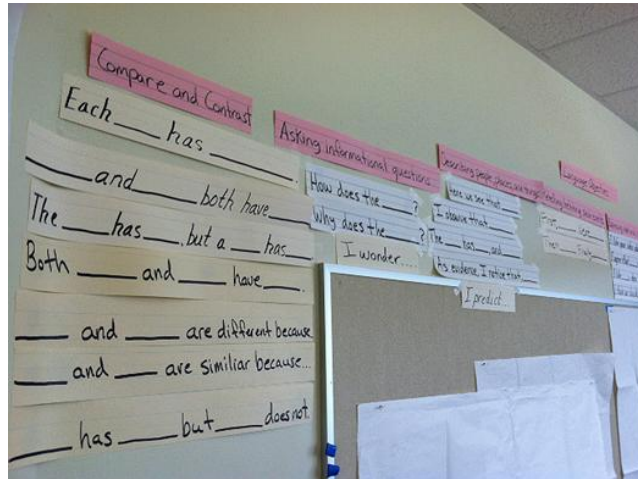 Compare and Contrast
Each ____ has ______.
____ and ____ both have ____
The ___ has ___, but a ___ has ___
Both ____ and ____ have ____.
___ and ____ are different because
___ and ____ are similiar because...
___ has ____ but ____ does not.
Asking informational questions
How does the ____?
Why does the ____?
I wonder....
Describing people, places, and things
Here we see that ___
I observe that ____
The ___ has ___ and
his evidence, I notice that ___
I predict...
Language Objectives
First,